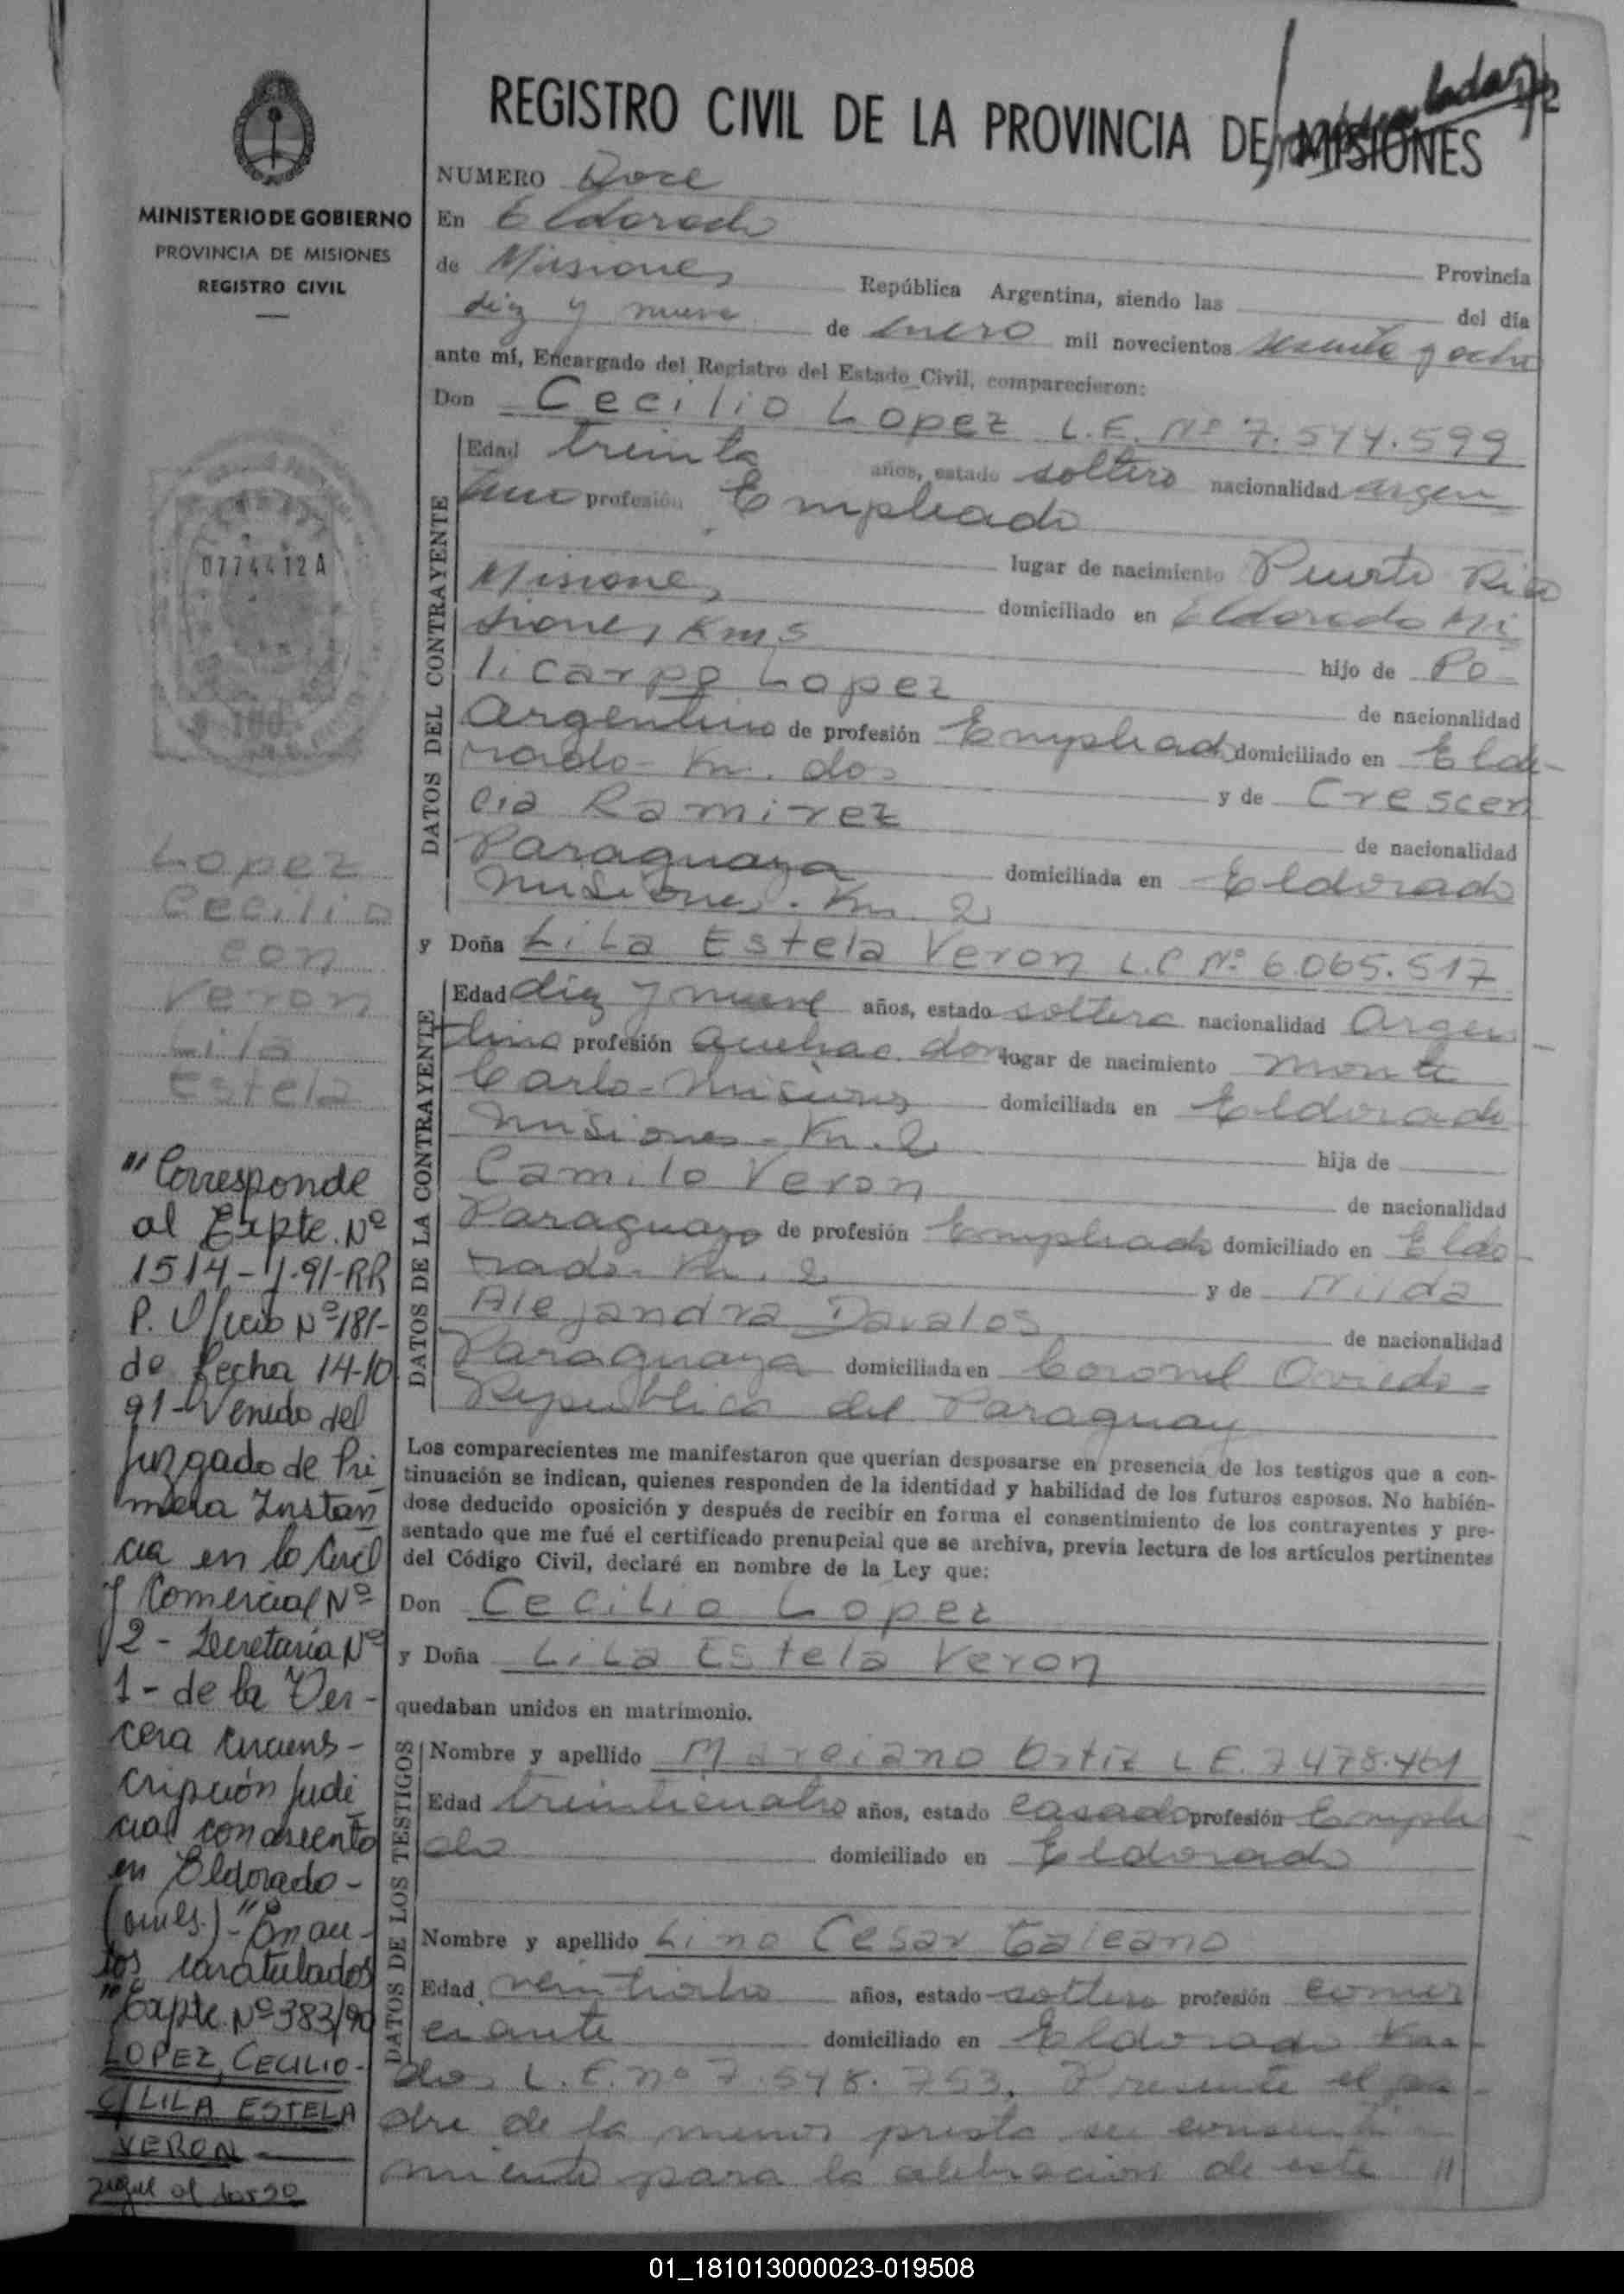 REGISTRO CIVIL DE LA PROVINCIA DE MISIONES
MINISTERIO DE GOBIERNO
PROVINCIA DE MISIONES
REGISTRO CIVIL
0774412A
NUMERO Doce
En Eldorado
Provincia
de Misiones República Argentina, siendo las del día
diez y nueve de Enero mil novecientos sesenta y ocho
ante mí, Encargado del Registro del Estado Civil, comparecieron:
Don Cecilio Lopez L.E. Nº 7.544.599
DATOS DEL CONTRAYENTE
Edad treinta años, estado soltero nacionalidad argen
tino profesión Empleado
lugar de nacimiento Puerto Rico
Misiones domiciliado en Eldorado Mi
siones Km 5
hijo de Po
licarpo Lopez
de nacionalidad
Argentino de profesión Empleado domiciliado en Eldo-
rado - Km. dos
y de Crescen
cia Ramirez
de nacionalidad
Paraguaya domiciliada en Eldorado
Misiones. Km. 2
y Doña Lila Estela Veron L.C Nº 6.065.517
DATOS DE LA CONTRAYENTE
Edad diez y nueve años, estado soltera nacionalidad Argen
tina profesión quehac. dom lugar de nacimiento Monte
Carlo - Misiones domiciliada en Eldorado
Misiones - Km. 2
hija de
Camilo Veron
de nacionalidad
Paraguayo de profesión Empleado domiciliado en Eldo-
rado - Km. 2
y de Nilda
Alejandra Davalos
de nacionalidad
Paraguaya domiciliada en Coronel Oviedo -
Republica del Paraguay
Los comparecientes me manifestaron que querían desposarse en presencia de los testigos que a con-
tinuación se indican, quienes responden de la identidad y habilidad de los futuros esposos. No habién-
dose deducido oposición y después de recibir en forma el consentimiento de los contrayentes y pre-
sentado que me fué el certificado prenupcial que se archiva, previa lectura de los artículos pertinentes
del Código Civil, declaré en nombre de la Ley que:
Don Cecilio Lopez
y Doña Lila Estela Veron
quedaban unidos en matrimonio.
DATOS DE LOS TESTIGOS
Nombre y apellido Marciano Ortiz L E. 7 478.461
Edad treinticuatro años, estado casado profesión Emplea
do domiciliado en Eldorado
Nombre y apellido Lino Cesar Galeano
Edad veintiocho años, estado soltero profesión comer
ciante domiciliado en Eldorado Km-
dos L.E. nº 7.548.753. Presente el pa-
dre de la menor presta su consenti-
miento para la celebracion de este //
Lopez
Cecilio
con
Veron
Lila
Estela
"Corresponde
al Expte. Nº
1514-J-91-RR
P. Oficio Nº 181-
de fecha 14-10
91- Venido del
Juzgado de Pri
mera Instan
cia en lo Civil
y Comercial Nº
2 - Secretaría Nº
1 - de la Ter-
cera Circuns-
cripción Judi
cial con asiento
en Eldorado -
(mnes.)-" En au-
tos caratulados
"Expte. Nº 383/90
LOPEZ, CECILIO -
C/ LILA ESTELA
VERON -
sigue al dorso
01_181013000023-019508